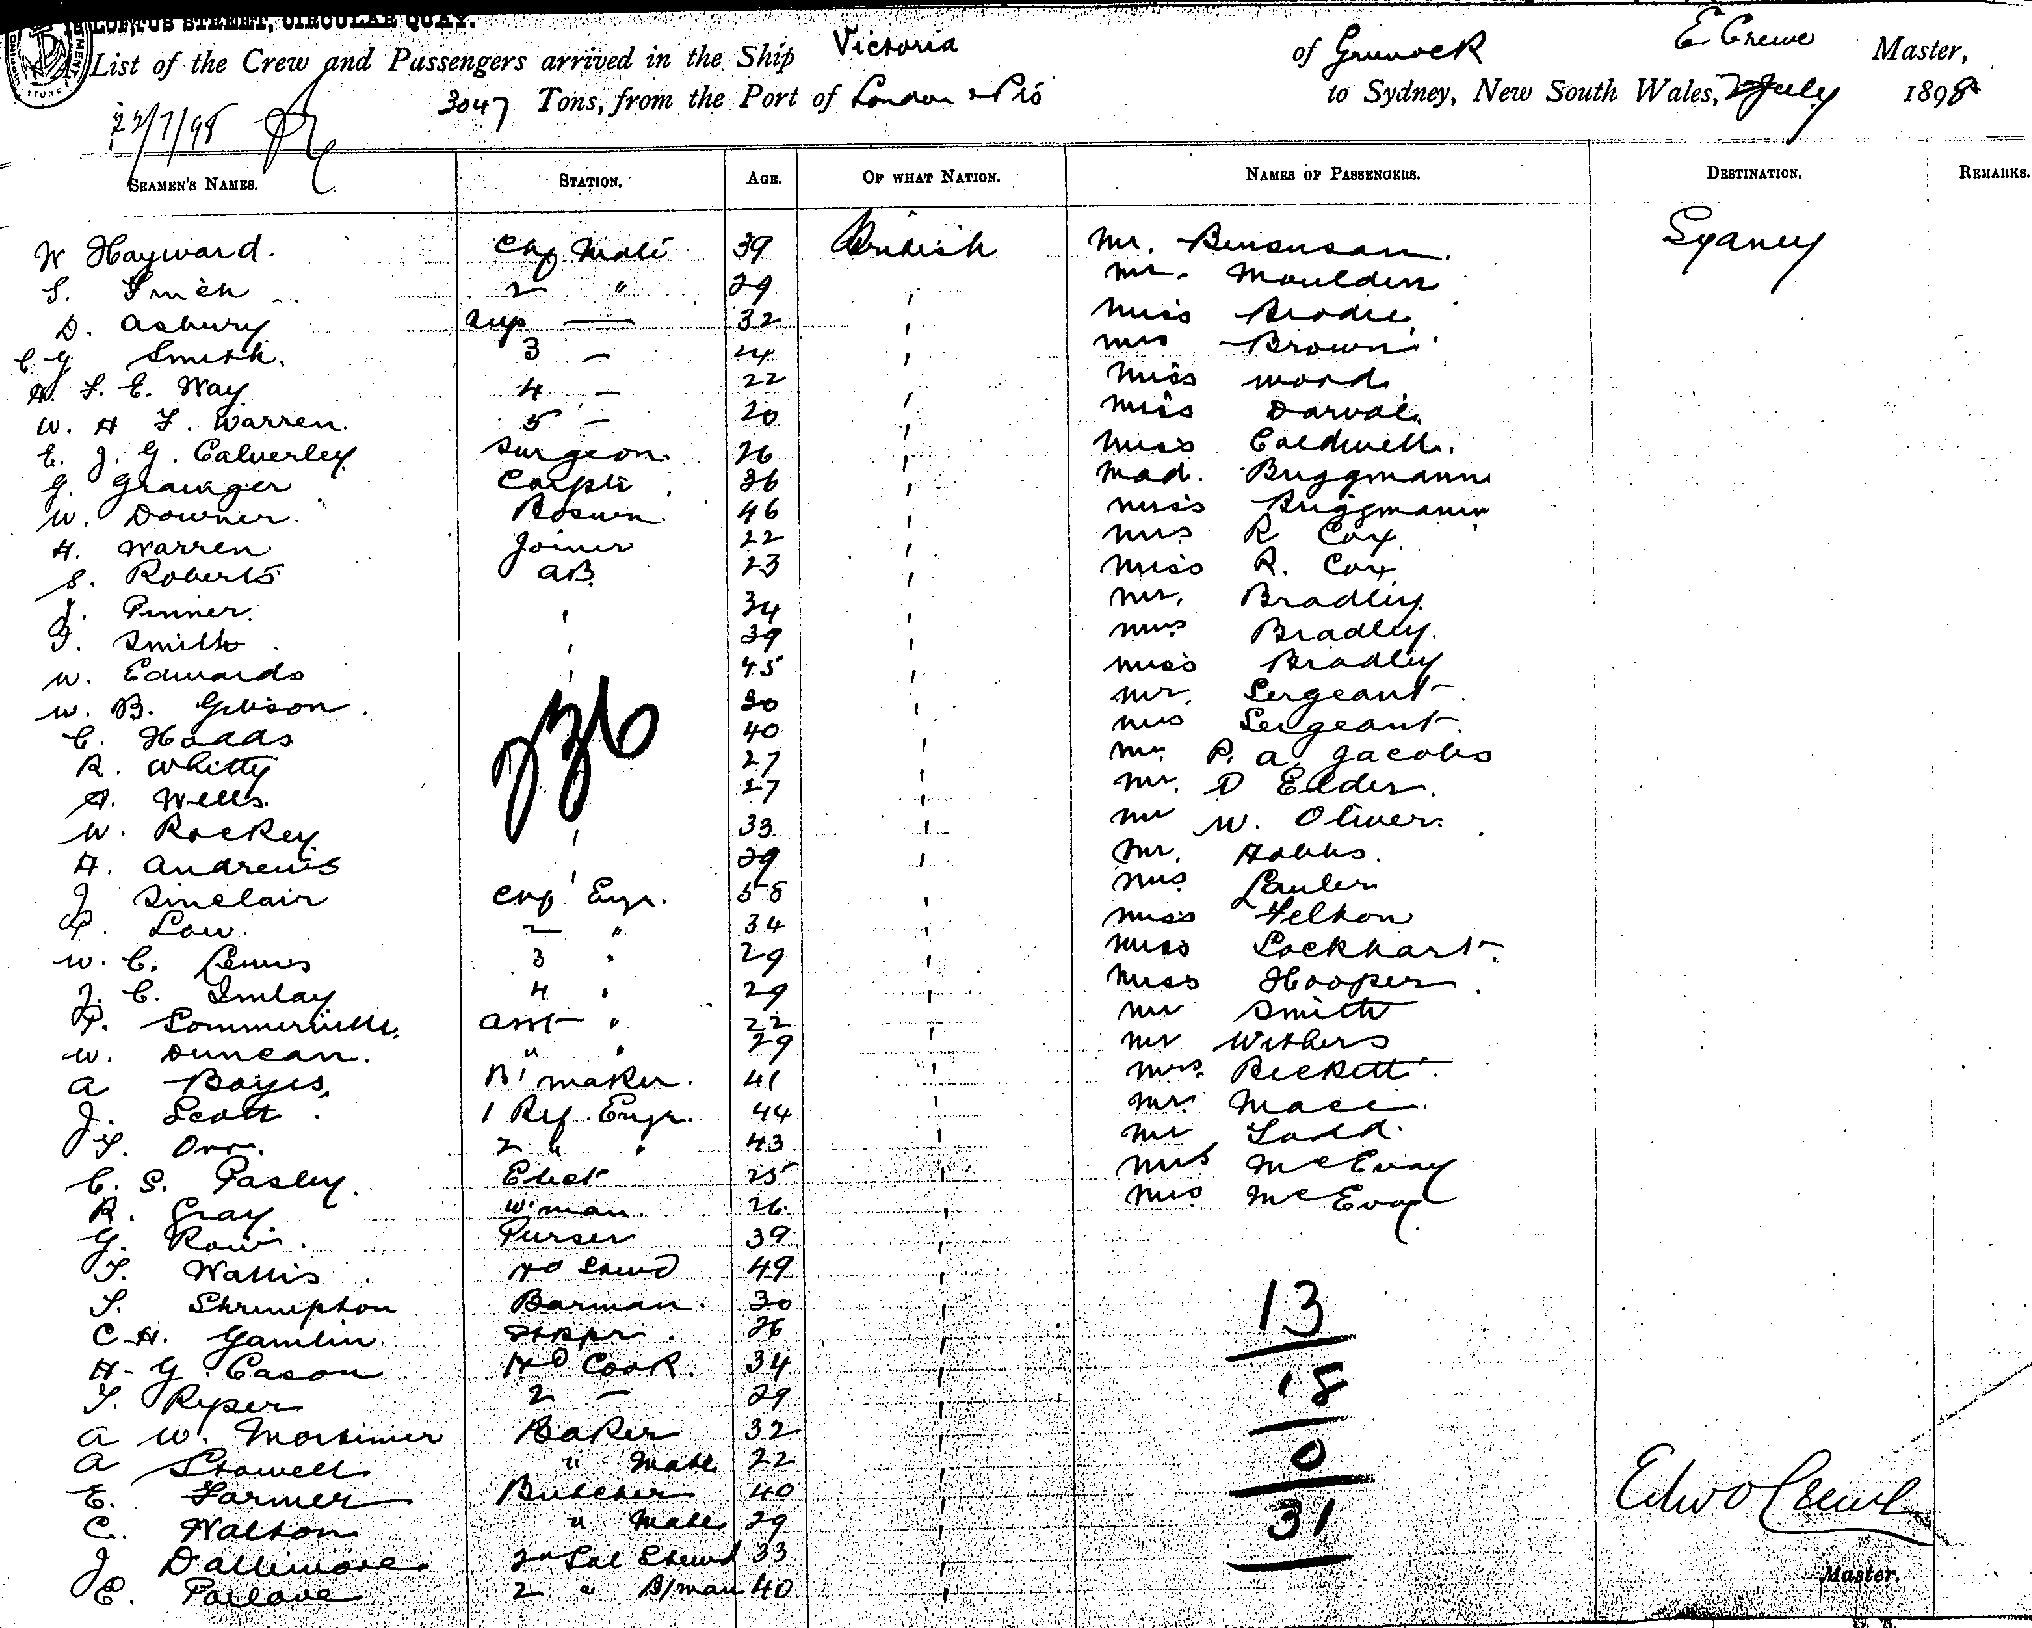 LOFTUS STREET, CIRCULAR QUAY.
List of the Crew and Passengers arrived in the Ship Victoria of Greenock E Crewe Master,
3047 Tons, from the Port of London & Pts to Sydney, New South Wales, July 1898
22/7/98
SEAMEN'S NAMES. STATION. AGE. OF WHAT NATION. NAMES OF PASSENGERS. DESTINATION. REMARKS.
W Hayward. Chf Mate 39 British Mr. Bensusan. Sydney
S. 2 " 29 Mr. Moulden
D. Asbury Sup — 32 Miss Brodie
C G Smith. 3 — 24 Mrs Brown
H. F. E. Way 4 — 22 Miss Wood
W. H F. Warren. 5 — 20 Miss Darval
E. J. G. Calverley Surgeon 26 Miss Caldwell.
G. Grainger Carptr 36 Mad. Bruggmann
W. Downer. Bosun 46 Miss Bruggmann
H. Warren Joiner 22 Mrs R Cox
S. Roberts AB. 23 Miss R. Cox
J. Pinner. ' 34 Mr. Bradley
F. Smith ' 39 Mrs Bradley.
W. Edwards 45 Miss Bradley
W. B. Gibson. 30 Mr. Sergeant
C. Hoads 40 Mrs Sergeant
R. Whitty 27 Mr. P. A. Jacobs
A. Wells. 27 Mr. D Elder.
236
W. Rockey 33 Mr W. Oliver.
H. Andrews ' 29 Mr. Hobbs.
J Sinclair Chf Engr. 58 Mrs
P. Low. 2 " 34 Miss Felton
W. C. 3 " 29 Miss Lockhart.
J. C. Imlay 4 " 29 Miss Hooper.
P. Sommerville. Asst " 22 Mr Smith
W. Duncan. " " 29 Mr Withers
A Boyes, B' maker. 41 Mrs. Beckett.
J. Scott. 1 Ref. Engr. 44 Mr. Mace.
T. Orr. 2 " " 43 Mr Todd.
C. S. Pasley. Elect 25 Mrs McEvoy
R. Gray. W'man. 26 Mrs McEvoy
G. Row. Purser 39
T. Wallis Hd Stewd 49
T. Shrimpton Barman. 30 13
C. H. Gamlin. Stkpr. 26
H. G. Cason Hd Cook. 34 18
T. Ryper 2 — 29
A W. Mortimer Baker 32
A Stowell " Mate 22 0
E. Farmer Butcher 40
C. Walton " Mate 29 31 Edwd Crewe
J Dallimore 2nd Sal Stewd 33
E. Parlave 2 " B/man 40 Master.